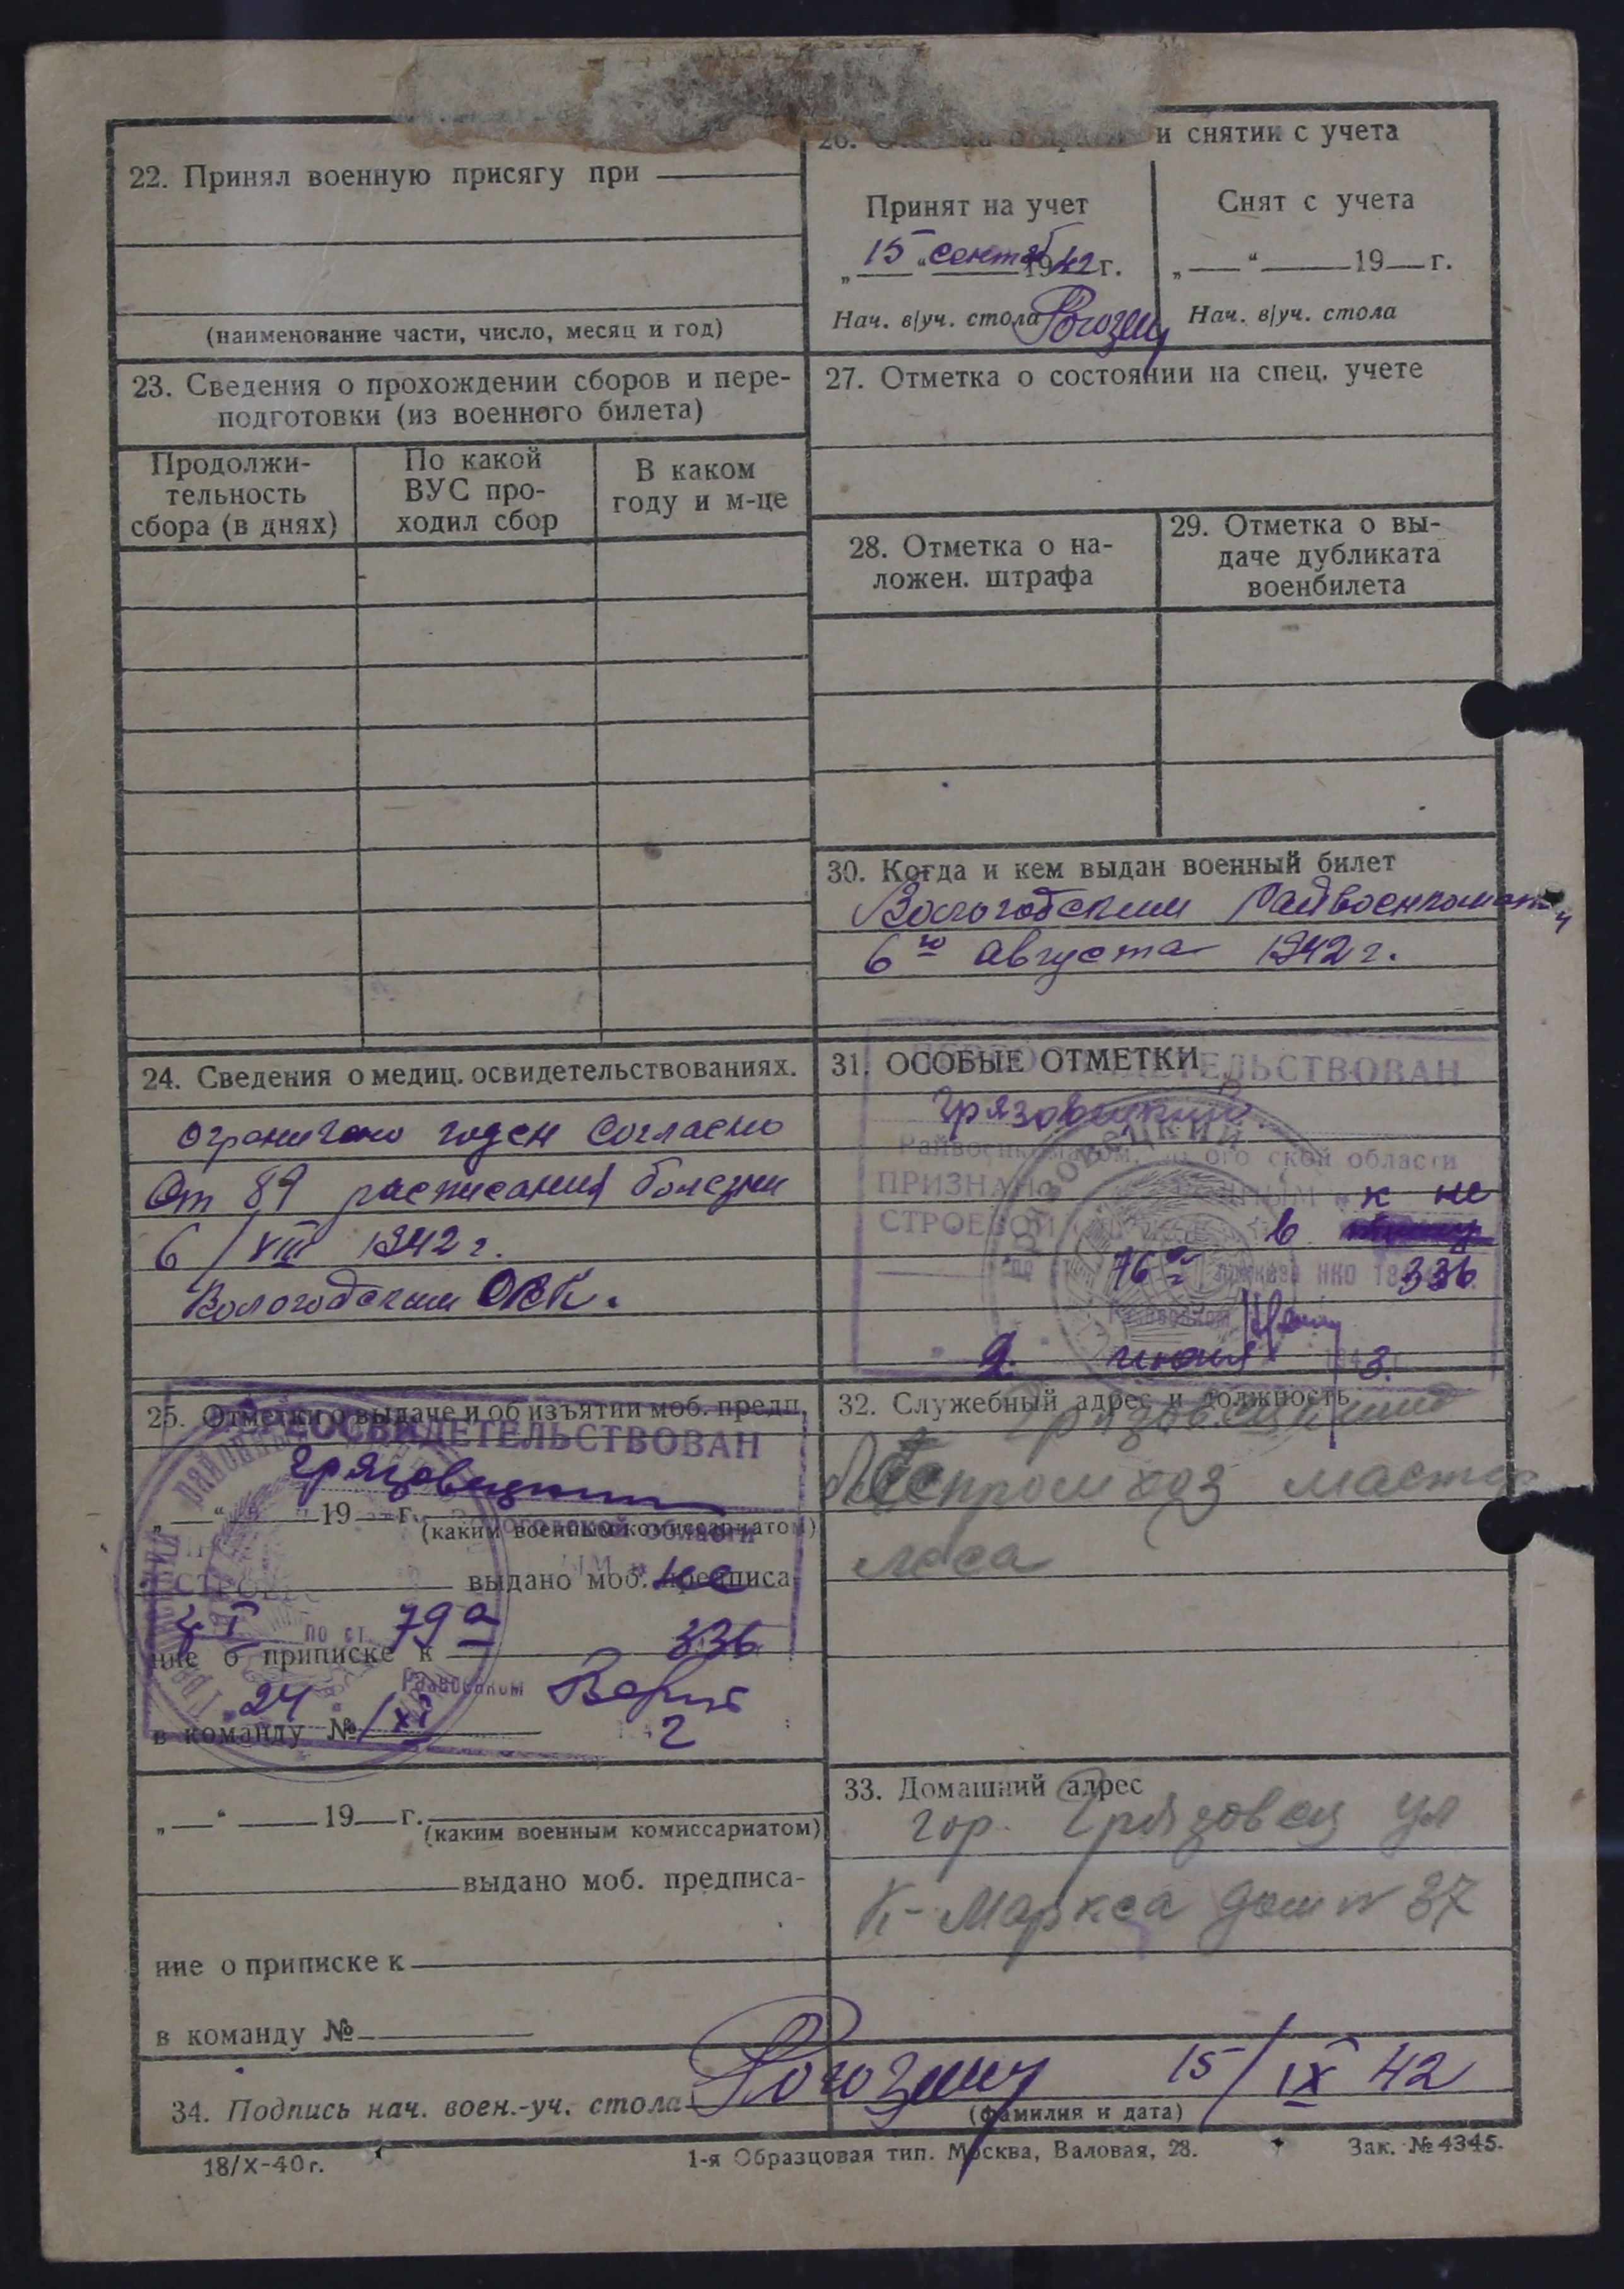 22. Принял военную присягу при
(наименование части, число, месяц и год)
23. Сведения о прохождении сборов и пере-
подготовки (из военного билета)
Продолжи-
тельность
сбора (в днях)
По какой
ВУС про-
ходил сбор
В каком
году и м-це
24. Сведения о медиц. освидетельствованиях.
Ограничено годен согласно
От 89 расписания болезни
6/VIII 1942 г.
Вологодским ОВК.
25. Отметки о выдаче и об изъятии моб. предп.
ПЕРЕОСВИДЕТЕЛЬСТВОВАН
Грязовецким
„ “ 19 г.
(каким военным комиссариатом)
Вологодской области
выдано моб. предписа
не
по ст. 79 а
336
ние о приписке к
Райвоенком
24 XI
2
в команду №
„ “ 19 г.
(каким военным комиссариатом)
выдано моб. предписа-
ние о приписке к
в команду №
26. и снятии с учета
Принят на учет
„15“ сентяб 1942 г.
Нач. в/уч. стола Рогозин
Снят с учета
„ “ 19 г.
Нач. в/уч. стола
27. Отметка о состоянии на спец. учете
28. Отметка о на-
ложен. штрафа
29. Отметка о вы-
даче дубликата
военбилета
30. Когда и кем выдан военный билет
Вологодским Райвоенкоматом
6го августа 1942 г.
31. ОСОБЫЕ ОТМЕТКИ
ПЕРЕОСВИДЕТЕЛЬСТВОВАН
Грязовецким
Райвоенкоматом, Вологодской области
ПРИЗНАН ГОДНЫМ „к не
СТРОЕВОЙ в
76 а приказа НКО 336
Райвоенком
„9“ июня 1943 г.
32. Служебный адрес и должность
Грязовецкий
Леспромхоз мастер
леса
33. Домашний адрес
гор. Грязовец ул
К-Маркса дом № 37
34. Подпись нач. воен.-уч. стола Рогозин 15/IX 42
(фамилия и дата)
18/X-40 г.
1-я Образцовая тип. Москва, Валовая, 28.
Зак. № 4345.